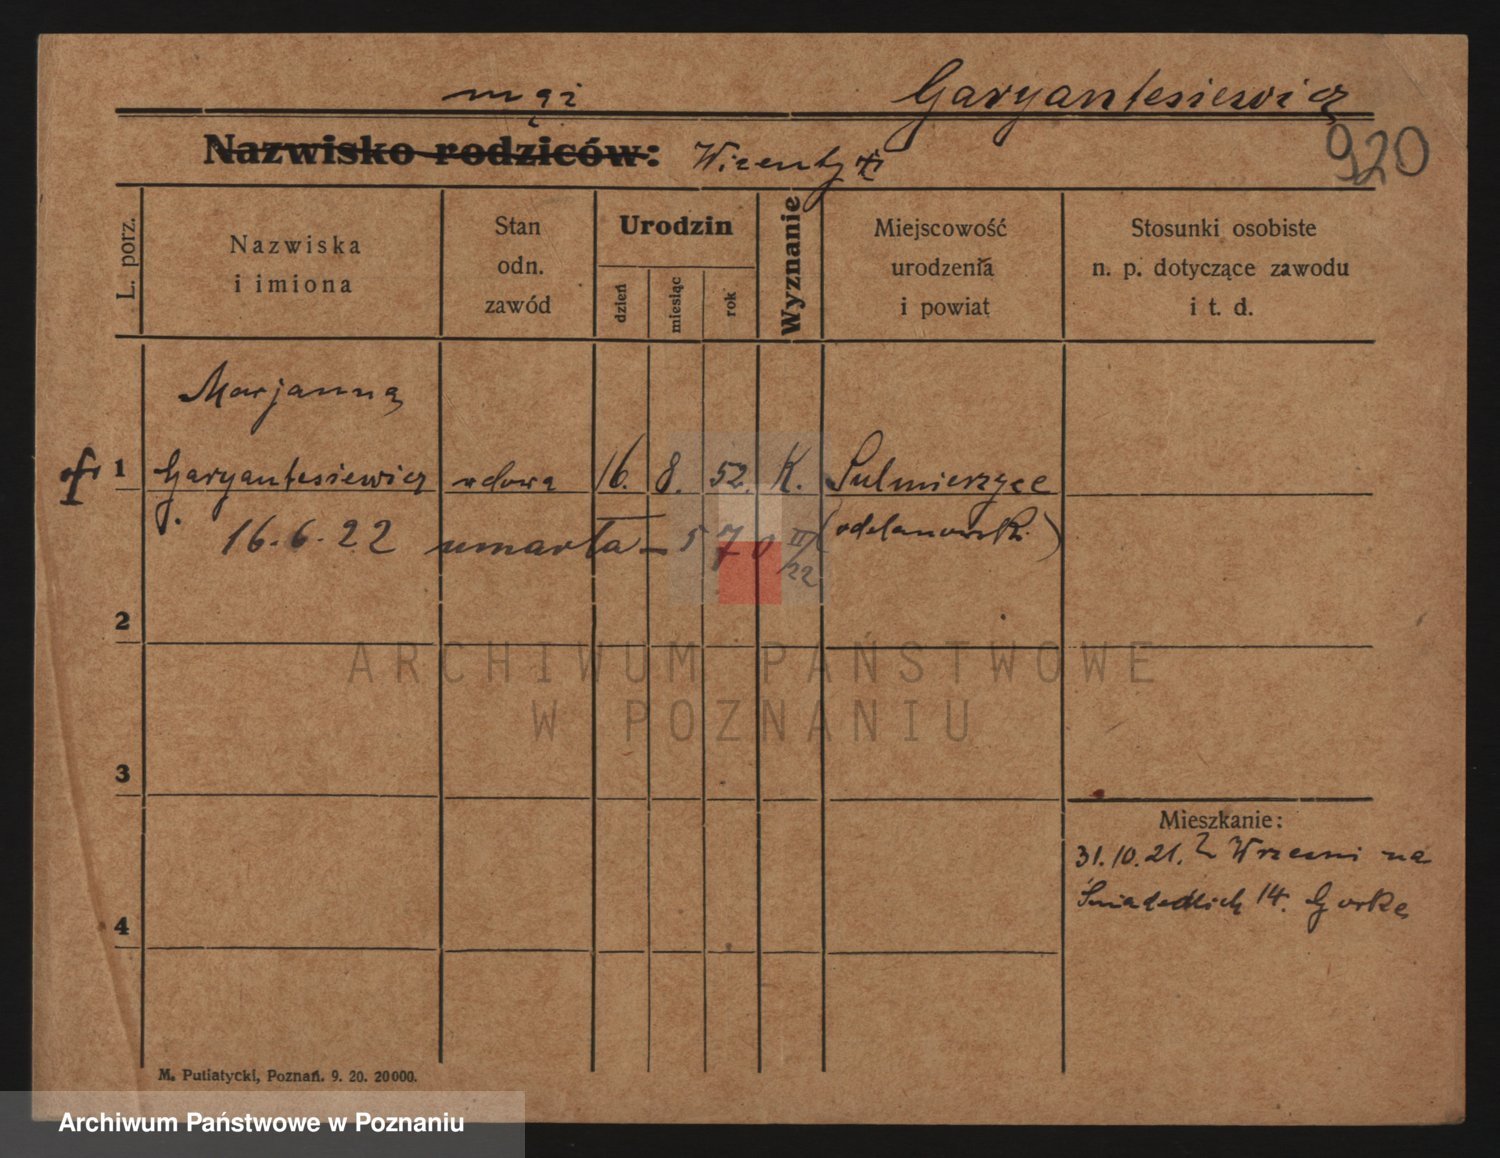 mąż Garyantesiewicz
Nazwisko rodziców: Wicenty
920
L. porz.
Nazwiska
i imiona
Stan
odn.
zawód
Urodzin
dzień
miesiąc
rok
Wyznanie
Miejscowość
urodzenia
i powiat
Stosunki osobiste
n. p. dotyczące zawodu
i t. d.
Marjanna
1 Garyantesiewicz wdowa 16. 8. 52. K. Sulmierzyce
16.6.22 umarła – 570 II/22 (odolanowski)
2
3
4
Mieszkanie:
31.10.21. Z Wrześni na
Śniadeckich 14. Gorke
M. Putiatycki, Poznań. 9. 20. 20000.
ARCHIWUM PAŃSTWOWE
W POZNANIU
Archiwum Państwowe w Poznaniu